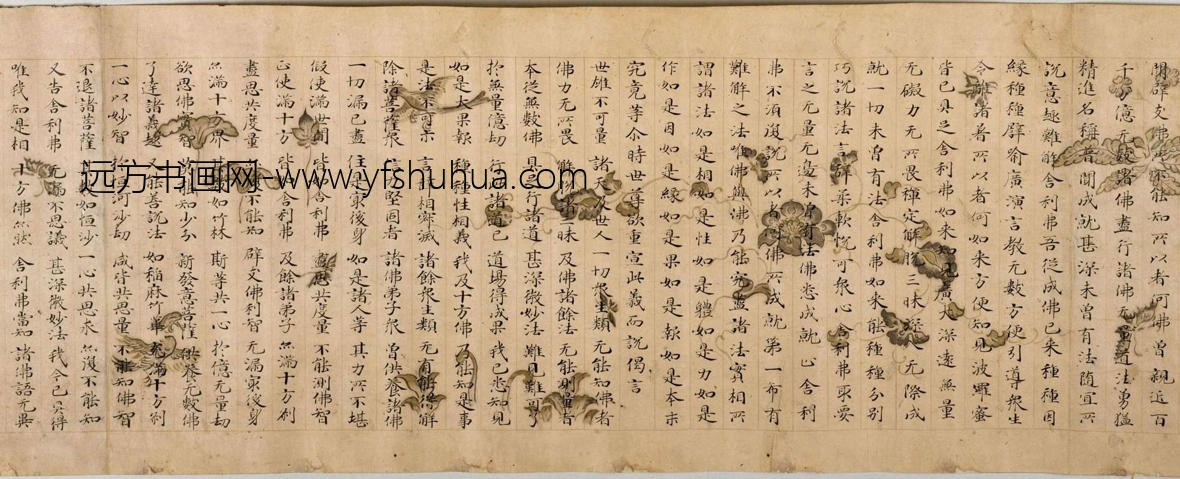 聞辟支佛所不能知所以者何佛曾親近百
千万億无數諸佛盡行諸佛无量道法勇猛
精進名稱普聞成就甚深未曾有法隨宜所
說意趣難解舍利弗吾從成佛已来種種因
緣種種譬喻廣演言教无數方便引導眾生
令離諸著所以者何如来方便知見波羅蜜
皆已具足舍利弗如来知見廣大深遠無量
无礙力无所畏禪定解脫三昧深入无際成
就一切未曾有法舍利弗如来能種種分別
巧說諸法言辭柔軟悅可眾心舍利弗取要
言之无量无邊未曾有法佛悉成就止舍利
弗不須復說所以者何佛所成就第一希有
難解之法唯佛與佛乃能究盡諸法實相所
謂諸法如是相如是性如是體如是力如是
作如是因如是緣如是果如是報如是本末
究竟等尒時世尊欲重宣此義而說偈言
世雄不可量 諸天及世人 一切眾生類 无能知佛者
佛力无所畏 解脫諸三昧 及佛諸餘法 无能測量者
本從無數佛 具足行諸道 甚深微妙法 難見難可了
於無量億劫 行此諸道已 道場得成果 我已悉知見
如是大果報 種種性相義 我及十方佛 乃能知是事
是法不可示 言辭相寂滅 諸餘眾生類 无有能得解
除諸菩薩眾 信力堅固者 諸佛弟子眾 曾供養諸佛
一切漏已盡 住是最後身 如是諸人等 其力所不堪
假使滿世間 皆如舍利弗 盡思共度量 不能測佛智
正使滿十方 皆如舍利弗 及餘諸弟子 亦滿十方刹
盡思共度量 亦復不能知 辟支佛利智 无漏最後身
亦滿十方界 其數如竹林 斯等共一心 於億无量劫
欲思佛實智 莫能知少分 新發意菩薩 供養无數佛
了達諸義趣 又能善說法 如稻麻竹葦 充滿十方刹
一心以妙智 於恒河沙劫 咸皆共思量 不能知佛智
不退諸菩薩 其數如恒沙 一心共思求 亦復不能知
又告舍利弗 无漏不思議 甚深微妙法 我今已具得
唯我知是相 十方佛亦然 舍利弗當知 諸佛語无異
远方书画网-www.yfshuhua.com